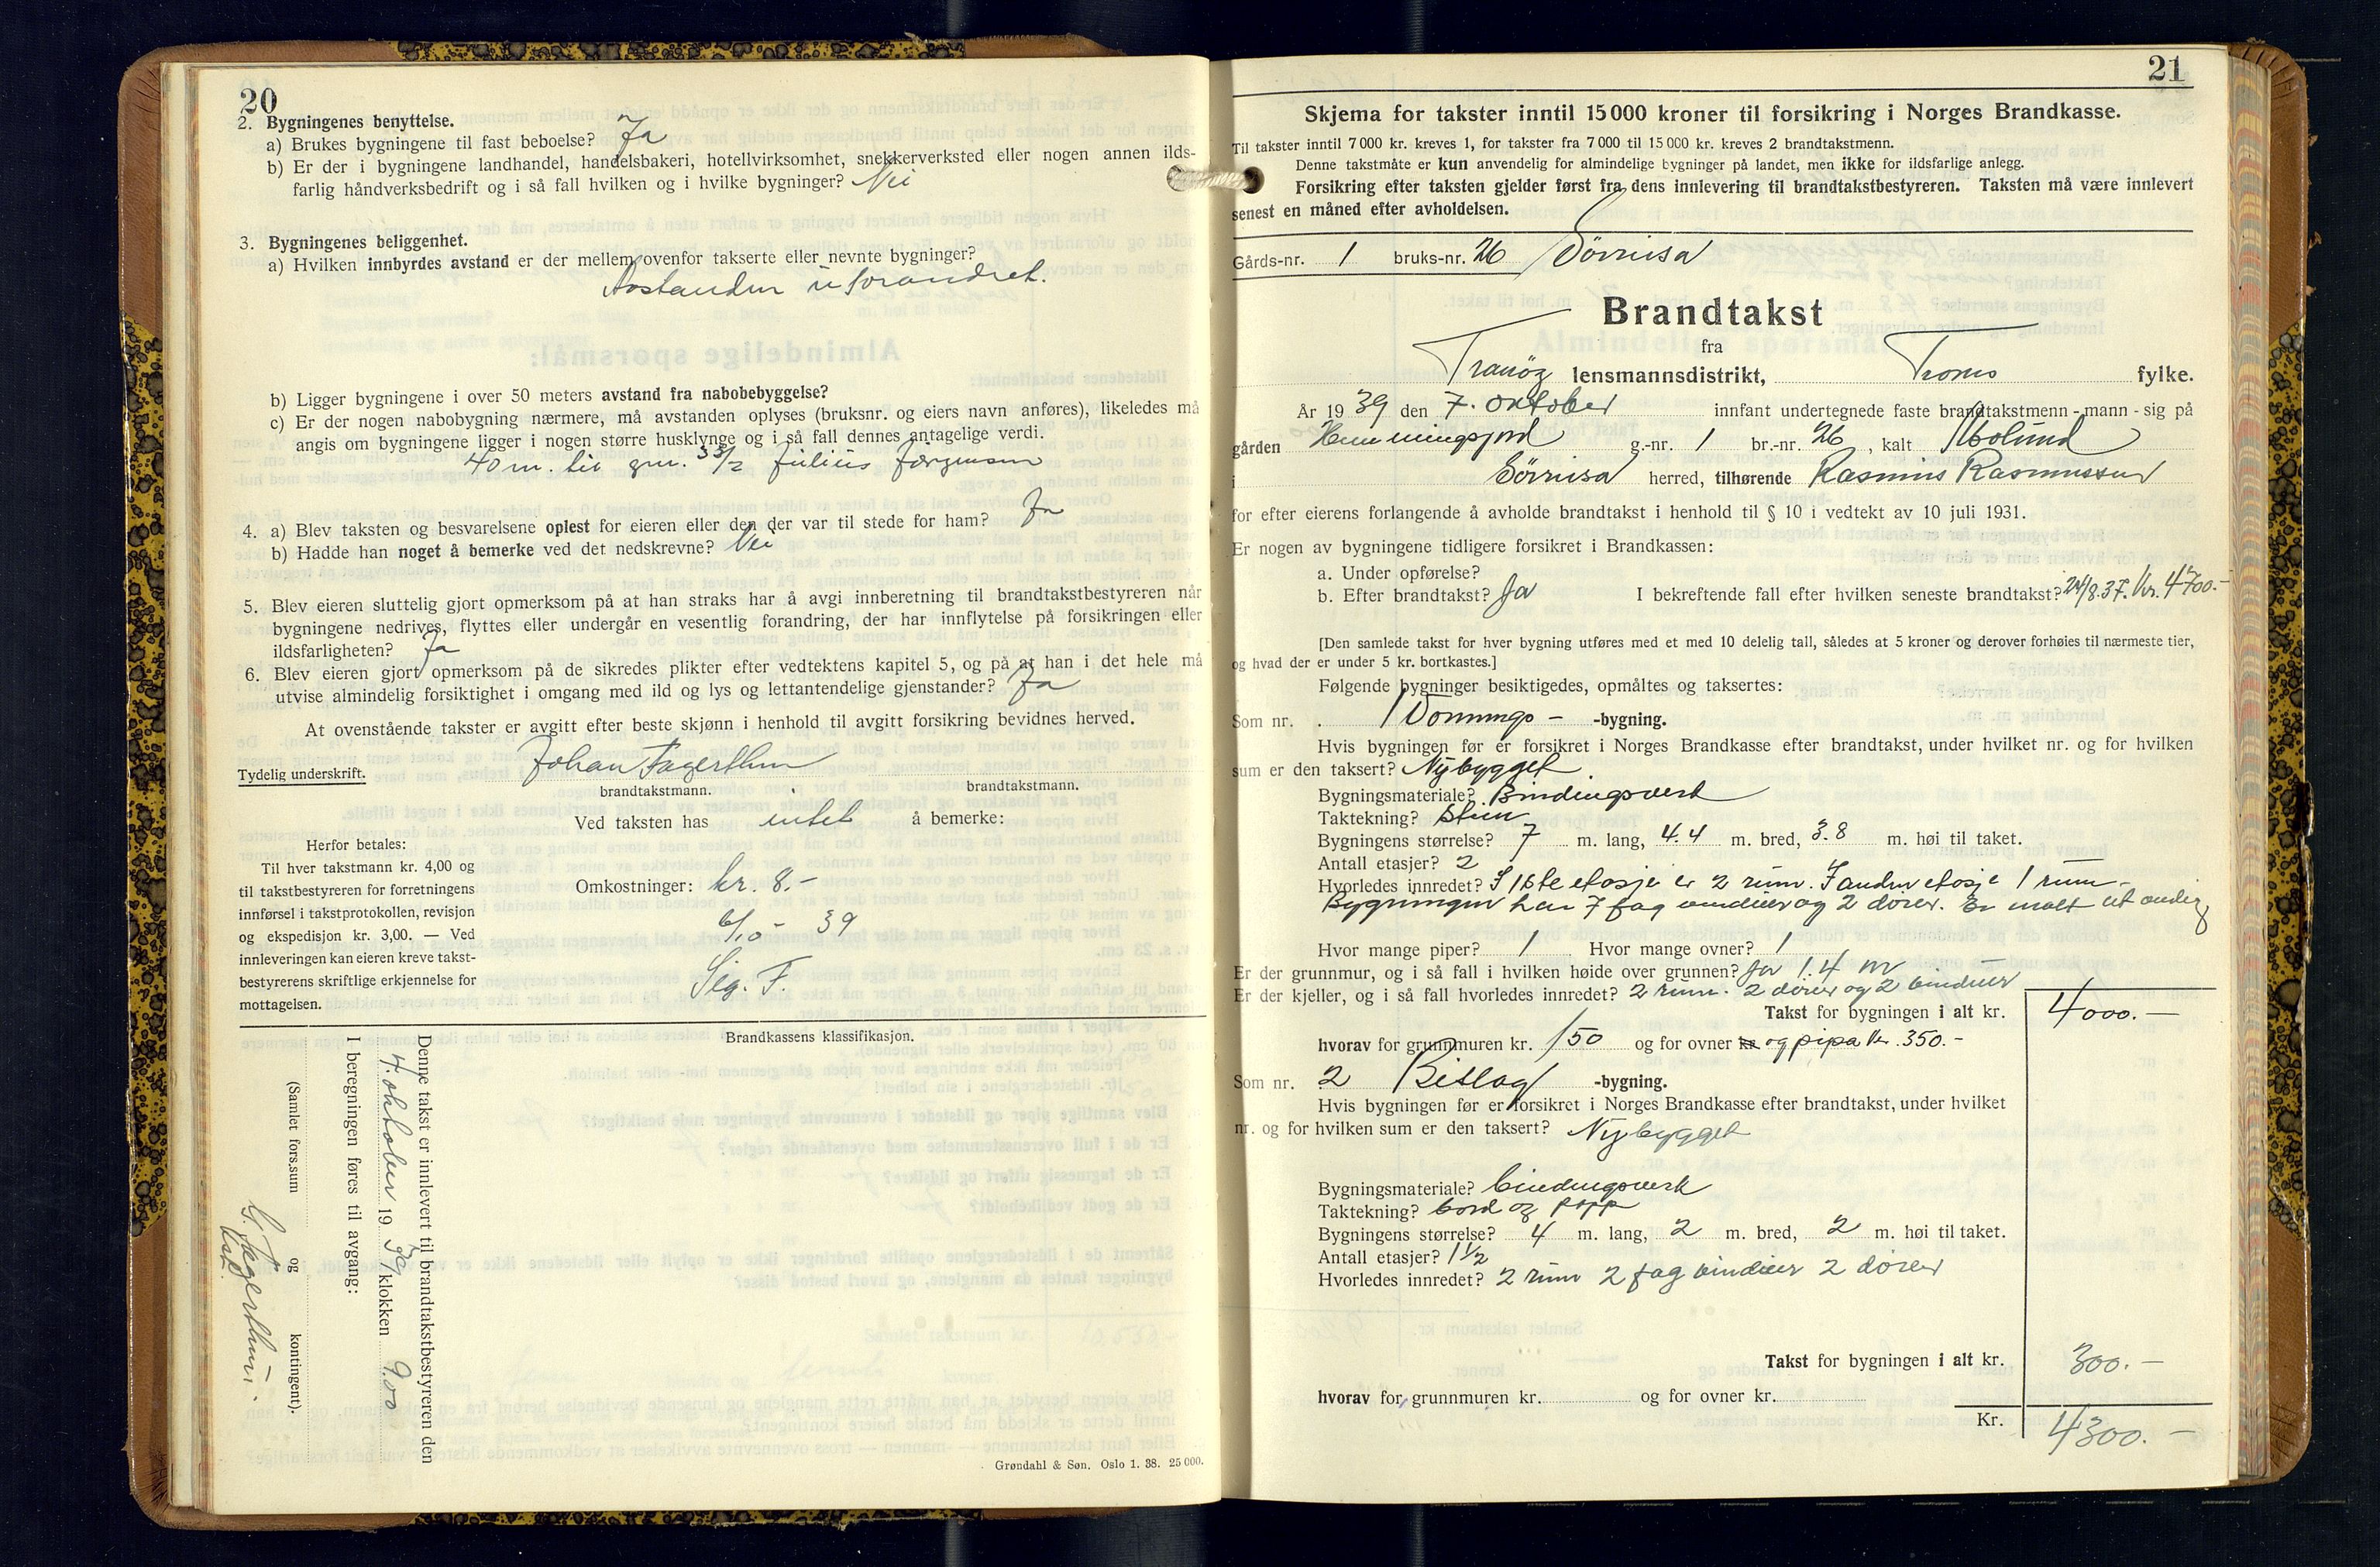 20
2. Bygningenes benyttelse.
a) Brukes bygningene til fast beboelse? Ja
b) Er der i bygningene landhandel, handelsbakeri, hotellvirksomhet, snekkerverksted eller nogen annen ilds-
farlig håndverksbedrift og i så fall hvilken og i hvilke bygninger? Nei
3. Bygningenes beliggenhet.
a) Hvilken innbyrdes avstand er der mellem ovenfor takserte eller nevnte bygninger?
Avstanden uforandret.
b) Ligger bygningene i over 50 meters avstand fra nabobebyggelse?
c) Er der nogen nabobygning nærmere, må avstanden oplyses (bruksnr. og eiers navn anføres), likeledes må
angis om bygningene ligger i nogen større husklynge og i så fall dennes antagelige verdi.
40 m. til gnr. 33/2 Julius Jørgensen
4. a) Blev taksten og besvarelsene oplest for eieren eller den der var til stede for ham? Ja
b) Hadde han noget å bemerke ved det nedskrevne? Nei
5. Blev eieren sluttelig gjort opmerksom på at han straks har å avgi innberetning til brandtakstbestyreren når
bygningene nedrives, flyttes eller undergår en vesentlig forandring, der har innflytelse på forsikringen eller
ildsfarligheten? Ja
6. Blev eieren gjort opmerksom på de sikredes plikter efter vedtektens kapitel 5, og på at han i det hele må
utvise almindelig forsiktighet i omgang med ild og lys og lettantendelige gjenstander? Ja
At ovenstående takster er avgitt efter beste skjønn i henhold til avgitt forsikring bevidnes herved.
Tydelig underskrift. Johan Fagerthun
brandtakstmann. brandtakstmann.
Ved taksten has intet å bemerke:
Herfor betales:
Til hver takstmann kr. 4,00 og
til takstbestyreren for forretningens
innførsel i takstprotokollen, revisjon
og ekspedisjon kr. 3,00. — Ved
innleveringen kan eieren kreve takst-
bestyrerens skriftlige erkjennelse for
mottagelsen.
Omkostninger: kr. 8.-
6/10 - 39
Sig. F.
Brandkassens klassifikasjon.
Denne takst er innlevert til brandtakstbestyreren den
4. oktober 1939 klokken 9.00
I beregningen føres til avgang:
(Samlet fors.sum og kontingent).
G. Fagerthun.
Grøndahl & Søn. Oslo 1. 38. 25 000.
21
Skjema for takster inntil 15 000 kroner til forsikring i Norges Brandkasse.
Til takster inntil 7 000 kr. kreves 1, for takster fra 7 000 til 15 000 kr. kreves 2 brandtakstmenn.
Denne takstmåte er kun anvendelig for almindelige bygninger på landet, men ikke for ildsfarlige anlegg.
Forsikring efter taksten gjelder først fra dens innlevering til brandtakstbestyreren. Taksten må være innlevert
senest en måned efter avholdelsen.
Gårds-nr. 1 bruks-nr. 26 Sørreisa
Brandtakst
fra
Tranøy lensmannsdistrikt, Troms fylke.
År 1939 den 7. oktober innfant undertegnede faste brandtakstmenn - mann - sig på
gården Hemmingsjord g.-nr. 1 br.-nr. 26, kalt Molund
i Sørreisa herred, tilhørende Rasmus Rasmussen
for efter eierens forlangende å avholde brandtakst i henhold til § 10 i vedtekt av 10 juli 1931.
Er nogen av bygningene tidligere forsikret i Brandkassen:
a. Under opførelse?
b. Efter brandtakst? Ja I bekreftende fall efter hvilken seneste brandtakst? 24/8.37. Kr. 4700.-
[Den samlede takst for hver bygning utføres med et med 10 delelig tall, således at 5 kroner og derover forhøies til nærmeste tier,
og hvad der er under 5 kr. bortkastes.]
Følgende bygninger besiktigedes, opmåltes og taksertes:
Som nr. 1 Vånings- -bygning.
Hvis bygningen før er forsikret i Norges Brandkasse efter brandtakst, under hvilket nr. og for hvilken
sum er den taksert? Nybygget
Bygningsmateriale? Bindingsverk
Taktekning? Sten
Bygningens størrelse? 7 m. lang, 4.4 m. bred, 3.8 m. høi til taket.
Antall etasjer? 2
Hvorledes innredet? I 1ste etasje er 2 rum. I anden etasje 1 rum.
Bygningen har 7 fag vinduer og 2 dører. Er malt utvendig
Hvor mange piper? 1 Hvor mange ovner? 1
Er der grunnmur, og i så fall i hvilken høide over grunnen? Ja 1.4 m
Er der kjeller, og i så fall hvorledes innredet? 2 rum. 2 dører og 2 vinduer
Takst for bygningen i alt kr. 4000.-
hvorav for grunnmuren kr. 150 og for ovner kr. og pipa kr. 350.-
Som nr. 2 Bislag -bygning.
Hvis bygningen før er forsikret i Norges Brandkasse efter brandtakst, under hvilket
nr. og for hvilken sum er den taksert? Nybygget
Bygningsmateriale? bindingsverk
Taktekning? bord og papp
Bygningens størrelse? 4 m. lang, 2 m. bred, 2 m. høi til taket.
Antall etasjer? 1 1/2
Hvorledes innredet? 2 rum 2 fag vinduer 2 dører
Takst for bygningen i alt kr. 300.-
hvorav for grunnmuren kr. og for ovner kr.
Kr. 4300.-